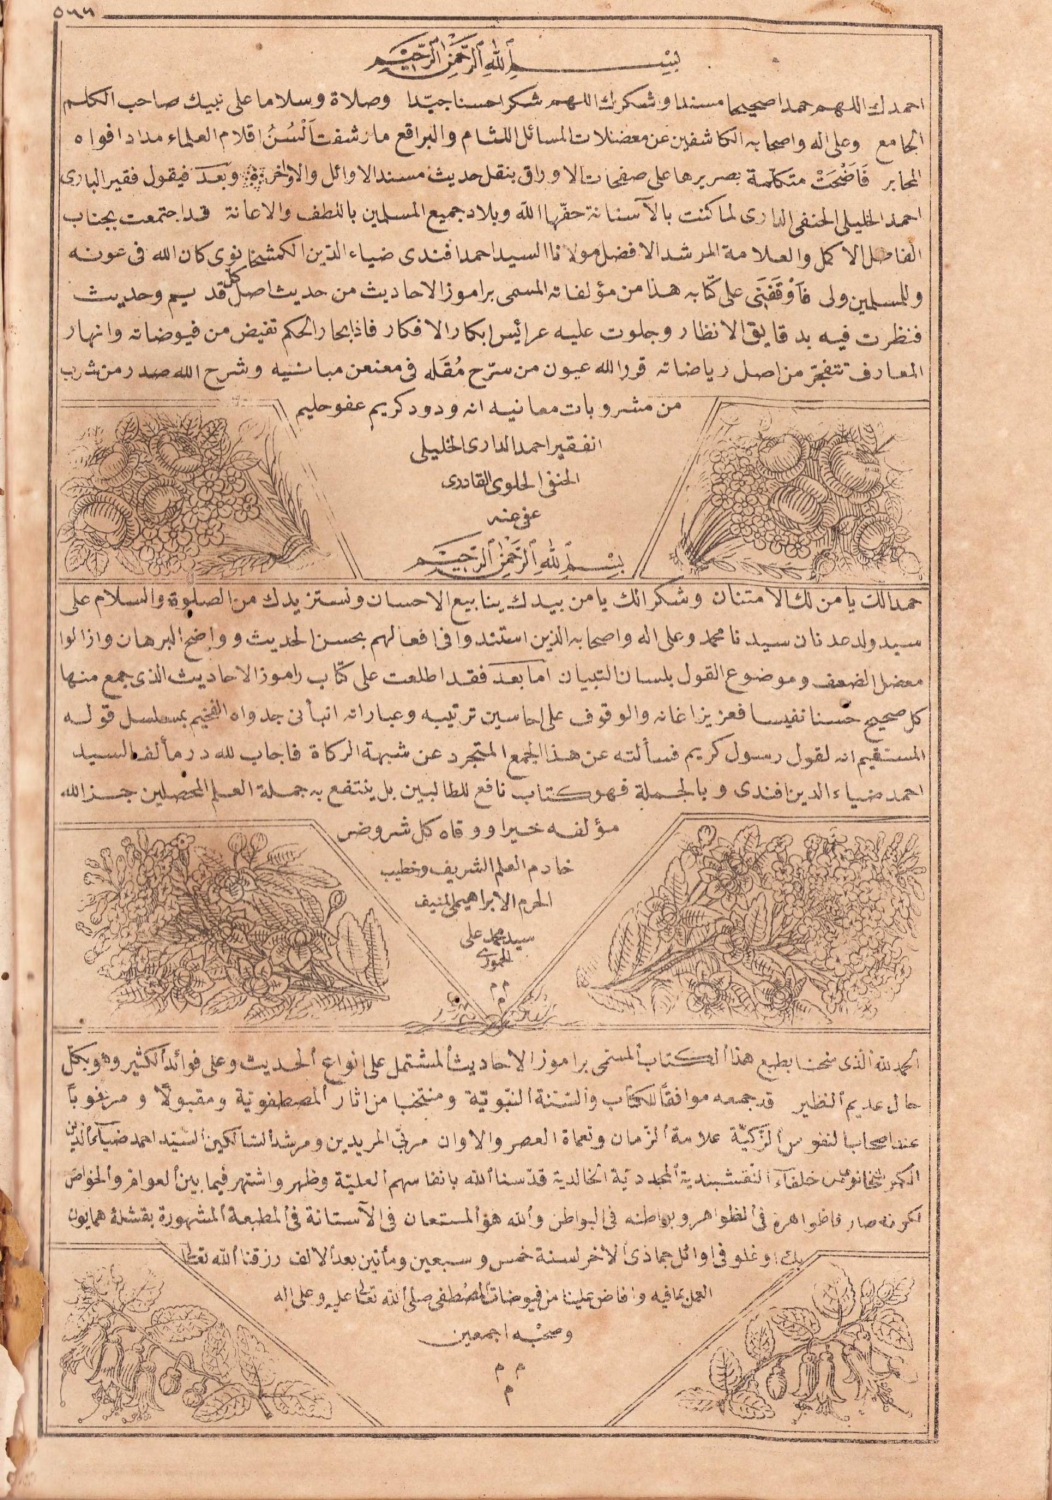 ٥٦٦
بسم الله الرحمن الرحيم
احمدك اللهم حمدا صحيحا مسندا وشكرك اللهم شكرا حسنا جيدا وصلاة وسلاما على نبيك صاحب الكلم
الجامع وعلى اله واصحابه الكاشفين عن معضلات المسائل اللثام والبراقع ما رشفت ألسن اقلام العلماء مداد افواه
المحابر فأضحت متكلمة بصريرها على صفحات الاوراق بنقل حديث مسند الاوائل والاواخر وبعد فيقول فقير البارى
احمد الخليلى الحنفى الدارى لما كنت بالآستانة حفّها الله وبلاد جميع المسلمين باللطف والاعانة قد اجتمعت بجناب
الفاضل الاكمل والعلامة المرشد الافضل مولانا السيد احمد افندى ضياء الدين الكمشخانوى كان الله فى عونه
وللمسلمين ولى فأوقفنى على كتابه هذا من مؤلفاته المسمى براموز الاحاديث من حديث اصل كل قديم وحديث
فنظرت فيه بدقايق الانظار وجلوت عليه عرائس ابكار الافكار فاذا بحار الحكم تفيض من فيوضاته وانهار
المعارف تتفجر من اصل رياضاته قرر الله عيون من سرّح مُقَله فى معنعن مبانيه وشرح الله صدر من شرب
من مشروبات معانيه انه ودود كريم عفو حليم
الفقير احمد الدارى الخليلى
الحنفى الخلوى القادرى
عفى عنه
بسم الله الرحمن الرحيم
حمدا لك يا من لك الامتنان وشكرا لك يا من بيدك ينابيع الاحسان ونستزيدك من الصلوة والسلام على
سيد ولد عدنان سيدنا محمد وعلى اله واصحابه الذين استندوا فى افعالهم بحسن الحديث وواضح البرهان وازالوا
معضل الضعف وموضوع القول بلسان التبيان اما بعد فقد اطلعت على كتاب راموز الاحاديث الذى جمع منها
كل صحيح حسنا نفيسا فعزيز اغانه والوقوف على احاسين ترتيبه وعباراته انبأنى جدواه الفخيم بمسلسل قوله
المستقيم انه لقول رسول كريم فسألته عن هذا الجمع المتجرد عن شبهة الركاة فاجاب لله در مألفه السيد
احمد ضياء الدين افندى وبالجملة فهو كتاب نافع للطالبين بل ينتفع به جملة العلم المحصلين جزا الله
مؤلفه خيرا ووقاه كل شر وضر
خادم العلم الشريف وخطيب
الحرم الابراهيمى المنيف
سيد محمد على
م م
م
الحمد لله الذى منحنا بطبع هذا الكتاب المسمى براموز الاحاديث المشتمل على انواع الحديث وعلى فوائد الكثير وهو بكل
حال عديم النظير قد جمعه موافقا للكتاب والسنة النبوية ومنتخبا من اثار المصطفوية ومقبولا ومرغوبا
عند اصحاب النفوس الزكية علامة الزمان ونعماة العصر والاوان مربى المريدين ومرشد السالكين السيد احمد ضياء الدين
الكمشخانوى من خلفاء النقشبندية المجددية الخالدية قدسنا الله بانفاسهم العلية وظهر واشتهر فيما بين العوام والخواص
لكونه صار فاظواهره فى الظواهر وبواطنه فى البواطن والله هو المستعان فى الآستانة فى المطبعة المشهورة بقشله همايون
بك اوغلو فى اوائل جماذى الاخر لسنة خمس وسبعين ومأتين بعد الالف رزقنا الله تعالى
العمل بما فيه وافاض علينا من فيوضات المصطفى صلى الله تعالى عليه وعلى اله
وصحبه اجمعين
م م
م